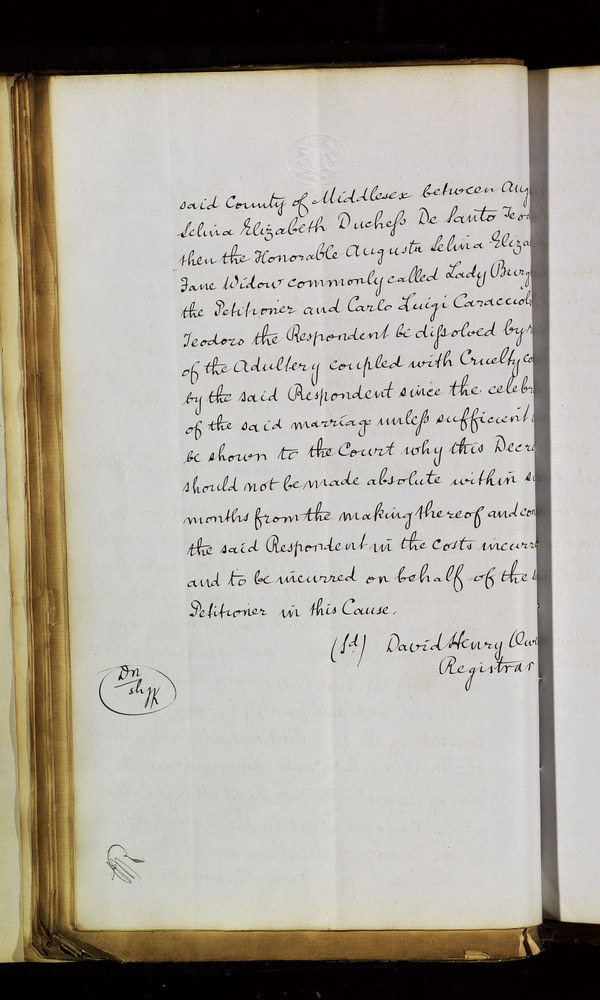 said County of Middlesex between Aug
Selina Elizabeth Duchess De Santo Teo
then the Honorable Augusta Selina Eliza
Jane Widow commonly called Lady Burg
the Petitioner and Carlo Luigi Caracciol
Teodoro the Respondent be dissolved by r
of the Adultery coupled with Cruelty co
by the said Respondent since the celeb
of the said marriage unless sufficient
be shown to the Court why this Decre
should not be made absolute within s
months from the making thereof and con
the said Respondent in the costs incurr
and to be incurred on behalf of the
Petitioner in this Cause.
(Sd) David Henry Owe
Registrar